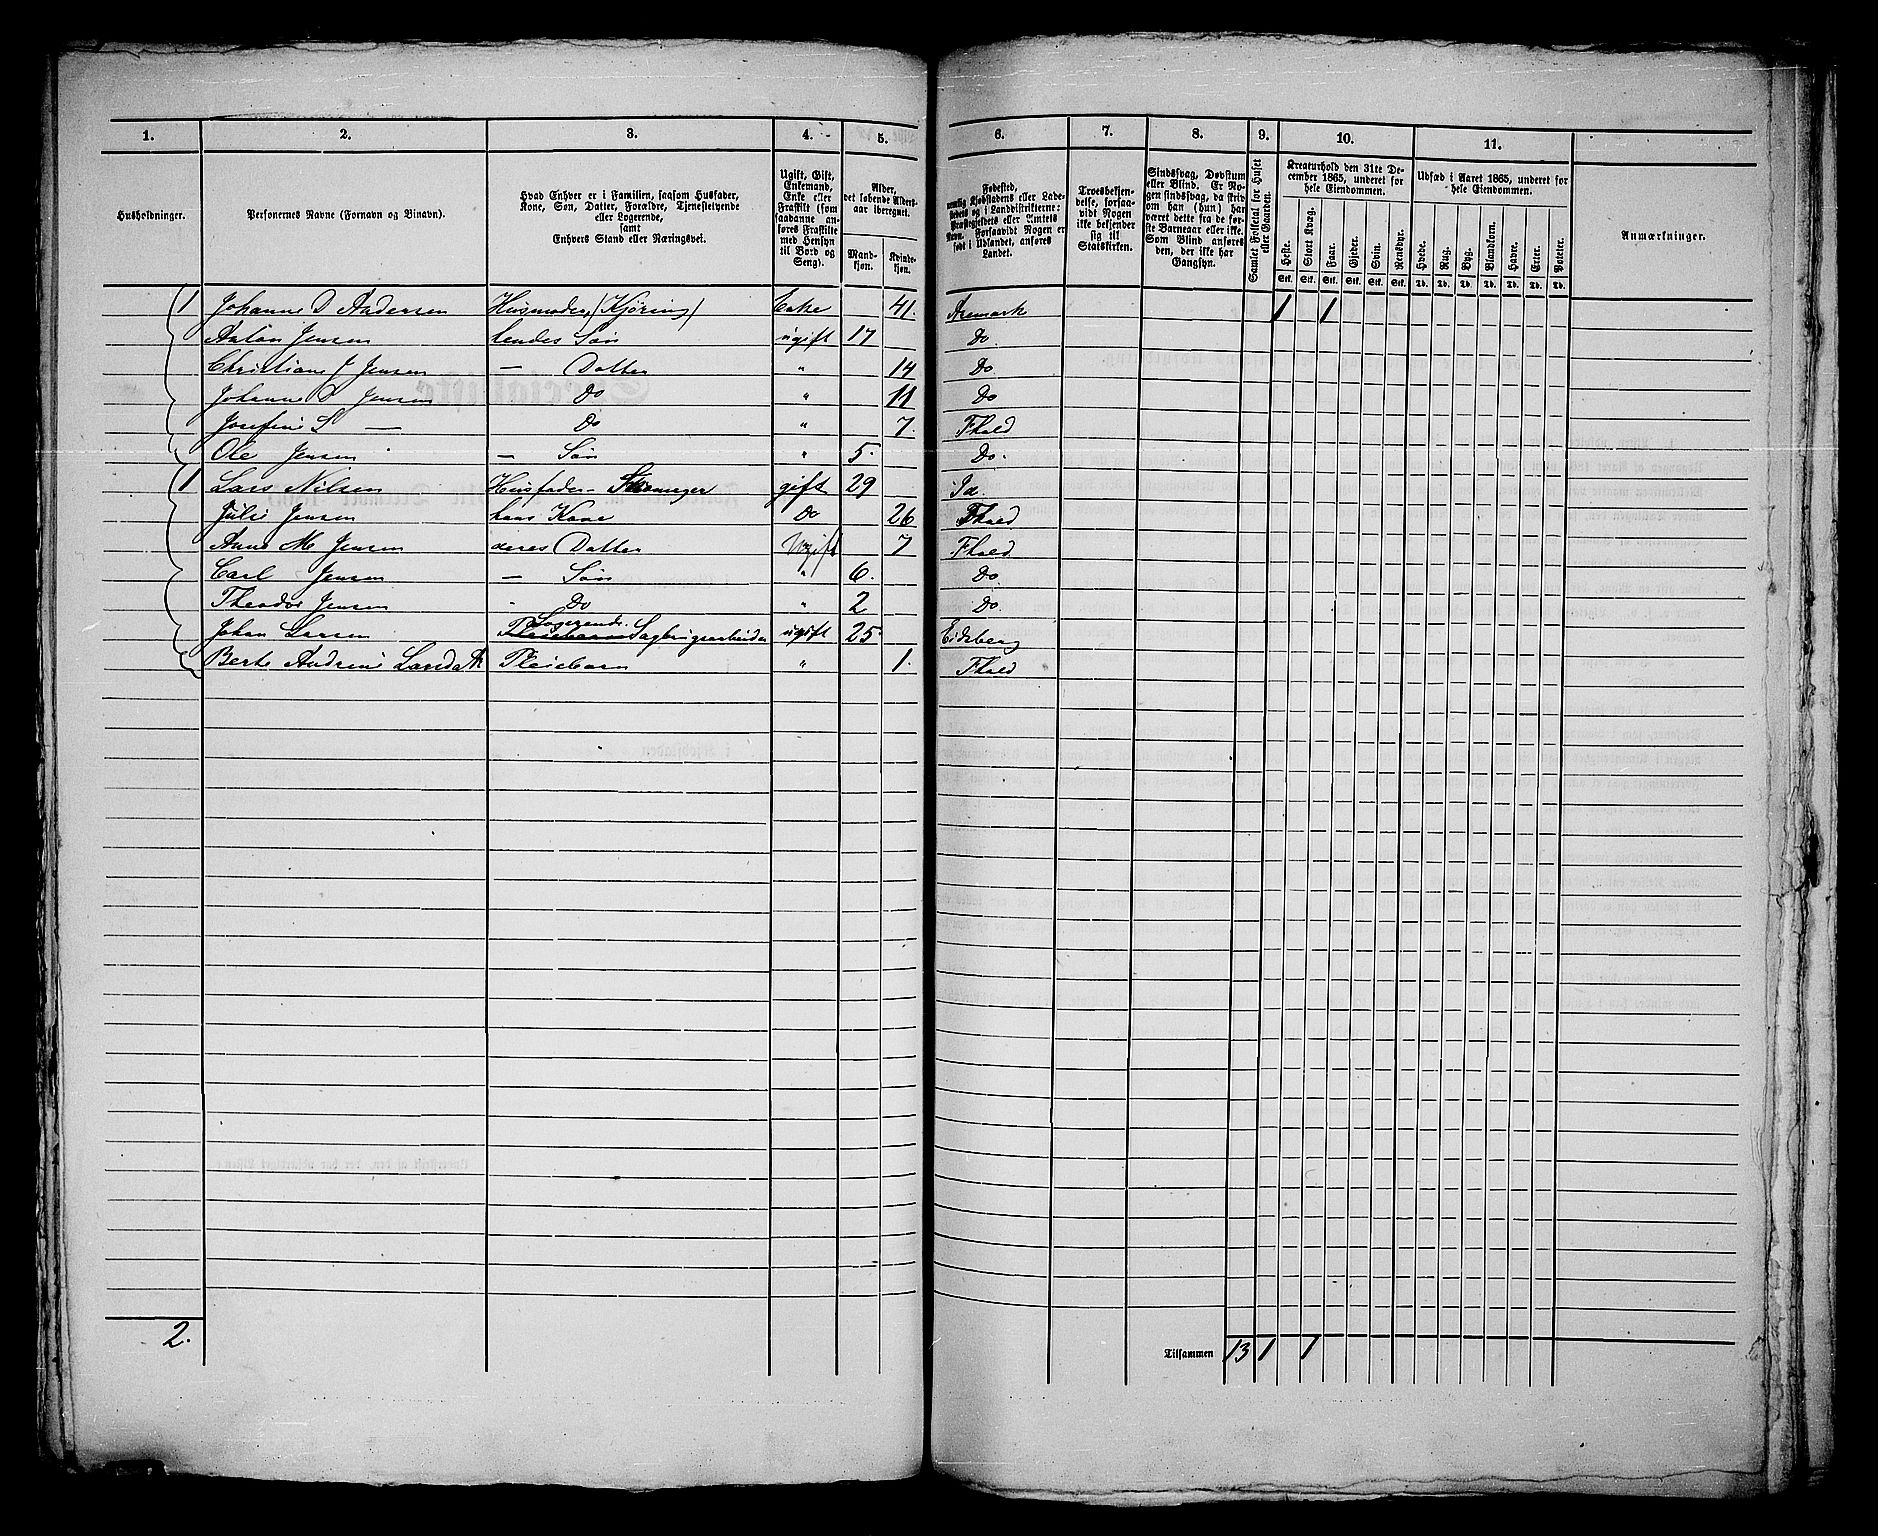 1. 2. 3. 4. 5. 6. 7. 8. 9. 10. 11.
Husholdninger.
Personernes Navne (Fornavn og Binavn).
Hvad Enhver er i Familien, saasom Husfader,
Kone, Søn, Datter, Forældre, Tjenestetyende
eller Logerende,
samt
Enhvers Stand eller Næringsvei.
Ugift, Gift,
Enkemand,
Enke eller
Fraskilt (som
saadanne an-
føres Fraskilte
med Hensyn
til Bord og
Seng).
Alder,
det løbende Alders-
aar iberegnet.
Mand-
kjøn.
Kvinde-
kjøn.
Fødested,
nemlig Kjøbstadens eller Lade-
stedets og i Landdistrikterne:
Præstegjeldets eller Amtets
Navn. Forsaavidt Nogen er
født i Udlandet, anføres
Landet.
Troesbekjen-
delse, forsaa-
vidt Nogen
ikke bekjender
sig til
Statskirken.
Sindssvag, Døvstum
eller Blind. Er No-
gen sindssvag, da skriv
om han (hun) har
været dette fra de før-
ste Barneaar eller ikke.
Som Blind anføres
den, der ikke har
Gangsyn.
Samlet Folketal for Huset
eller Gaarden.
Kreaturhold den 31te De-
cember 1865, underet for
hele Eiendommen.
Heste. Stort Kvæg. Faar. Gjeder. Svin. Rensdyr.
Stk. Stk. Stk. Stk. Stk. Stk.
Udsæd i Aaret 1865, underet for
hele Eiendommen.
Hvede. Rug. Byg. Blandkorn. Havre. Erter. Poteter.
Td. Td. Td. Td. Td. Td. Td.
Anmærkninger.
1 Johanne D Andersen Husmoder, (Kjøring) Enke 41. Aremark 1 1
Anton Jensen hendes Søn ugift 17 Do.
Christiane J Jensen — Datter " 14 Do
Johanne D Jensen Do " 11 Do
Josefine S — Do " 7. Fhald
Ole Jensen — Søn " 5. Do.
1 Lars Nilsen Husfader - gift 29 Id.
Julie Jensen hans Kone Do 26 Fhald
Anne M Jensen deres Datter Ugift 7 Fhald
Carl Jensen — Søn " 6. Do.
Theodor Jensen - Do " 2 Do.
Johan Larsen Logerende. Pleiebarn Sagbrugsarbeider ugift 25. Eidsberg
Berte Andrine Larsdatr Pleiebarn " 1. Fhald
2.
Tilsammen 13 1 1